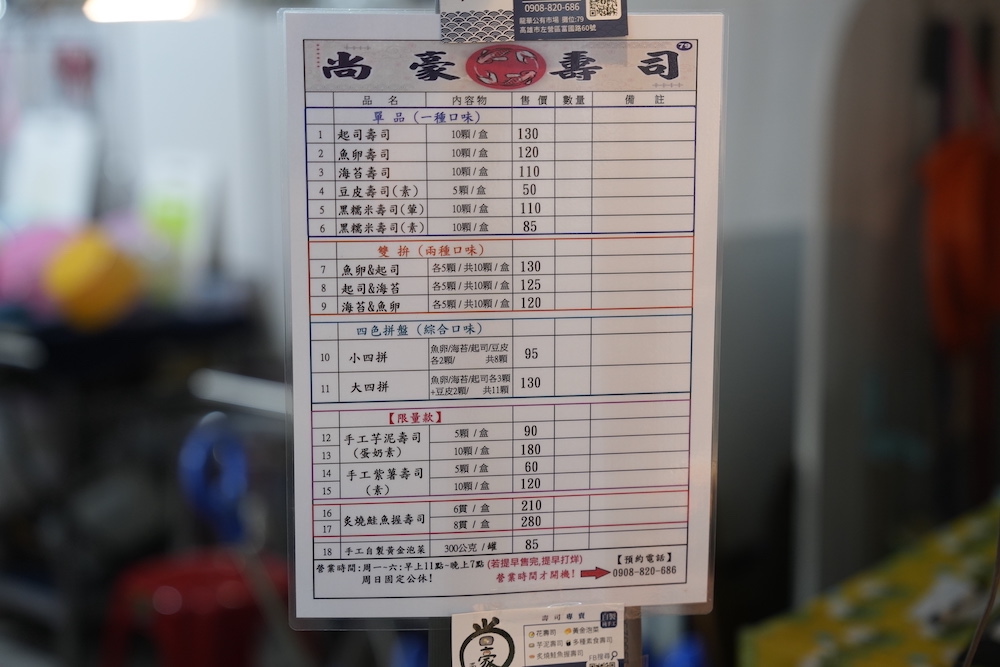 0908-820-686
龍華公有市場 攤位:79
高雄市左營區富國路60號
尚豪壽司 79
品名 內容物 售價 數量 備註
單品(一種口味)
1 起司壽司 10顆/盒 130
2 魚卵壽司 10顆/盒 120
3 海苔壽司 10顆/盒 110
4 豆皮壽司(素) 5顆/盒 50
5 黑糯米壽司(葷) 10顆/盒 110
6 黑糯米壽司(素) 10顆/盒 85
雙拚(兩種口味)
7 魚卵&起司 各5顆/共10顆/盒 130
8 起司&海苔 各5顆/共10顆/盒 125
9 海苔&魚卵 各5顆/共10顆/盒 120
四色拼盤(綜合口味)
10 小四拼 魚卵/海苔/起司/豆皮 各2顆/ 共8顆 95
11 大四拼 魚卵/海苔/起司各3顆 +豆皮2顆/ 共11顆 130
【限量款】
12 手工芋泥壽司 5顆/盒 90
13 (蛋奶素) 10顆/盒 180
14 手工紫薯壽司 5顆/盒 60
15 (素) 10顆/盒 120
16 炙燒鮭魚握壽司 6貫/盒 210
17 8貫/盒 280
18 手工自製黃金泡菜 300公克/罐 85
營業時間:周一-六:早上11點-晚上7點 (若提早售完,提早打烊) 【預約電話】
周日固定公休! 營業時間才開機! 0908-820-686
壽司專賣
花壽司 黃金泡菜
芋泥壽司 多種素食壽司
炙燒鮭魚握壽司 FB搜尋
尚豪